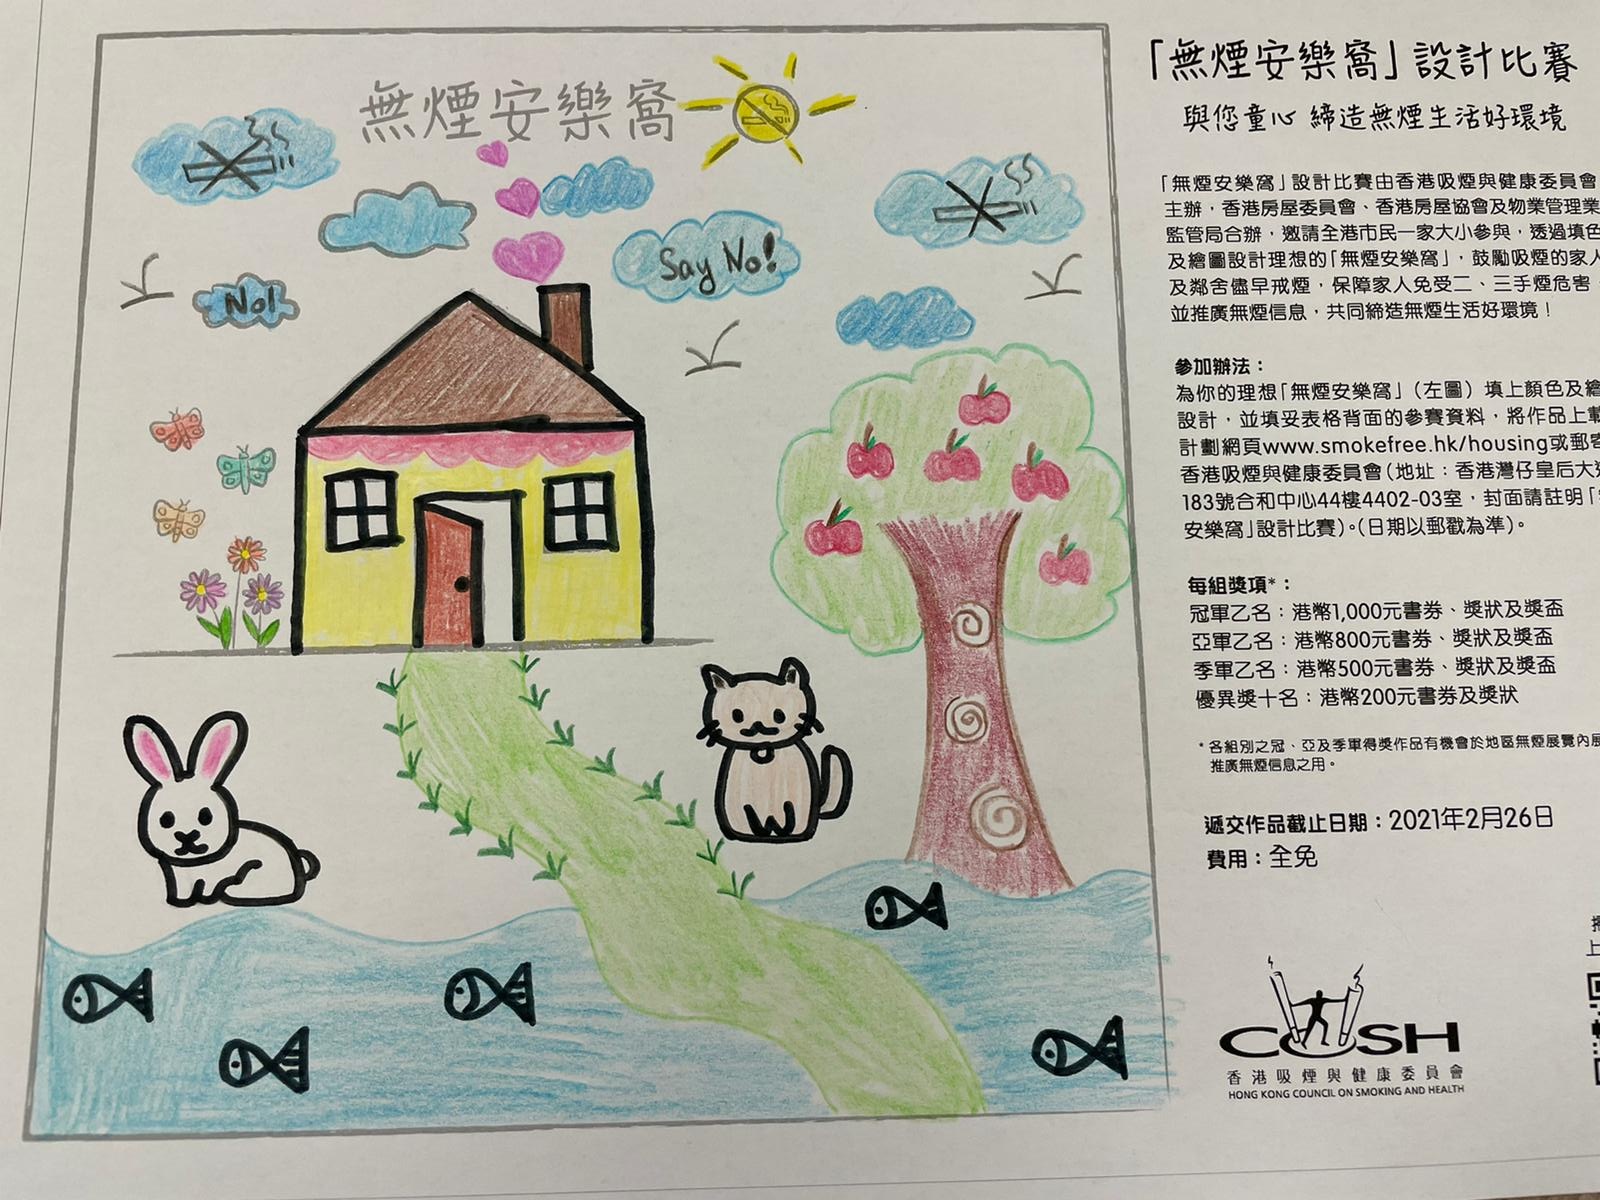 無煙安樂窩
Say No!
No!
「無煙安樂窩」設計比賽
與您童心 締造無煙生活好環境
「無煙安樂窩」設計比賽由香港吸煙與健康委員會
主辦，香港房屋委員會、香港房屋協會及物業管理業
監管局合辦，邀請全港市民一家大小參與，透過填色
及繪圖設計理想的「無煙安樂窩」，鼓勵吸煙的家人
及鄰舍儘早戒煙，保障家人免受二、三手煙危害，
並推廣無煙信息，共同締造無煙生活好環境！
參加辦法：
為你的理想「無煙安樂窩」（左圖）填上顏色及繪
設計，並填妥表格背面的參賽資料，將作品上載
計劃網頁www.smokefree.hk/housing或郵寄
香港吸煙與健康委員會（地址：香港灣仔皇后大道
183號合和中心44樓4402-03室，封面請註明「
安樂窩」設計比賽）。（日期以郵戳為準）。
每組獎項*：
冠軍乙名：港幣1,000元書券、獎狀及獎盃
亞軍乙名：港幣800元書券、獎狀及獎盃
季軍乙名：港幣500元書券、獎狀及獎盃
優異獎十名：港幣200元書券及獎狀
*各組別之冠、亞及季軍得獎作品有機會於地區無煙展覽內展
推廣無煙信息之用。
遞交作品截止日期：2021年2月26日
費用：全免
上
COSH
香港吸煙與健康委員會
HONG KONG COUNCIL ON SMOKING AND HEALTH